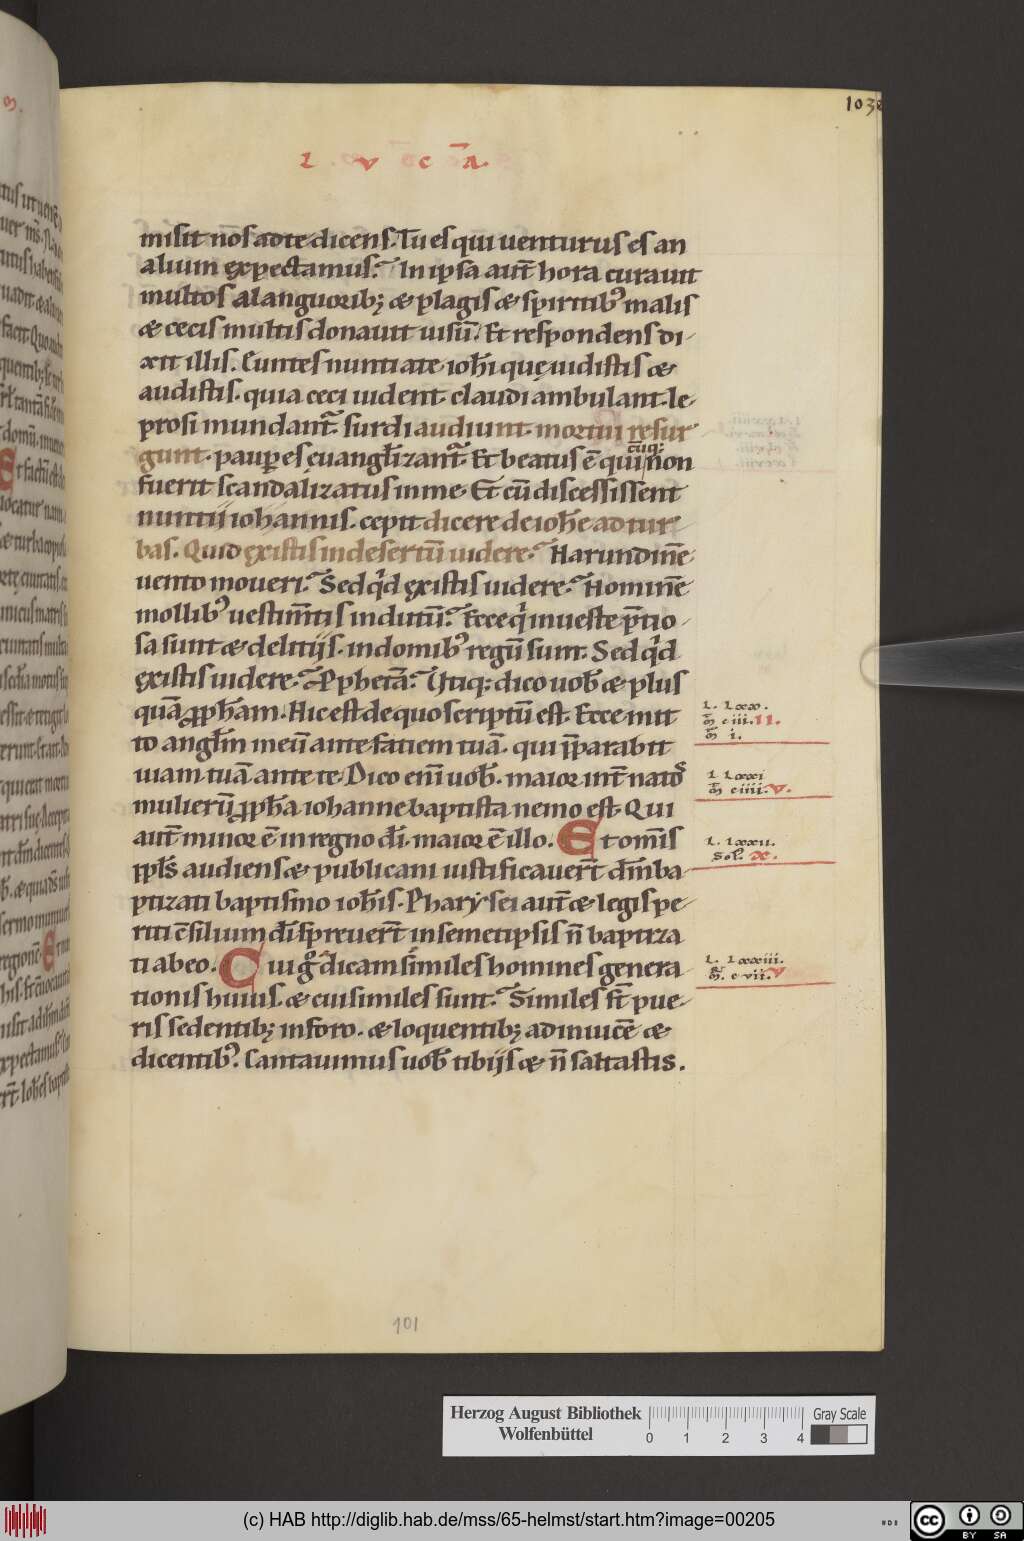 103
L V C A.
misit nos ad te dicens. Tu es qui uenturus es an
alium expectamus? In ipsa aut̄ hora curauit
multos a languorib; & plagis & spiritib᷒ malis
& cecis multis donauit uisū. Et respondens di-
xit illis. Euntes nuntiate ioh̄i quę uidistis &
audistis. quia ceci uident. claudi ambulant. le-
prosi mundant᷑. surdi audiunt. mortui resur
gunt. paup̱es euangl̄izant᷑. Et beatus ē quicūq; non
fuerit scandalizatus in me. Et cū discessissent
nuntij iohannis. cepit dicere de ioh̄e ad tur-
bas. Quid ęxistis in desertū uidere? Harundinē
uento moueri? Sed qͥd ęxistis uidere? Hominē
mollib᷒ uestim̄tis indutū? Ecce qͥ in ueste p̄tio-
sa sunt & delitijs. in domib᷒ regū sunt. Sed qͥd
ęxistis uidere? Pphetā? Vtiq; dico uob̄ & plus
quā ꝓph̄am. Hic est de quo scriptū est. Ecce mit
to angl̄m meū ante faciem tuā. qui p̄parabit
uiam tuā ante te. Dico enī uob̄. maior int̄ natos
mulierū ꝓph̄a iohanne baptista nemo est. Qui
aut̄ minor ē in regno dī. maior ē illo. Et om̄is
ppl̄s audiens & publicani iustificauer̄t dm̄ ba-
ptizati baptismo ioh̄is. Pharysei aut̄ & legis pe-
riti c̄silium dī spreuer̄t in semetipsis n̄ baptiza
ti ab eo. Cui gͦ dicam similes homines genera-
tionis huius. & cui similes sunt? Similes st̄ pue-
ris sedentib; in foro. & loquentib; ad inuicē &
dicentib᷒. Cantauimus uob̄ tibijs & n̄ saltastis.
L. lxx.
m̄ ciii. II.
m̄ i.
l lxxi
m̄ ciiii. V.
l. lxxii.
Sol. X.
L. lxxiii.
m̄. cvii. V
101
Herzog August Bibliothek
Wolfenbüttel
0 1 2 3 4
Gray Scale
(c) HAB http://diglib.hab.de/mss/65-helmst/start.htm?image=00205
HAB
cc BY SA